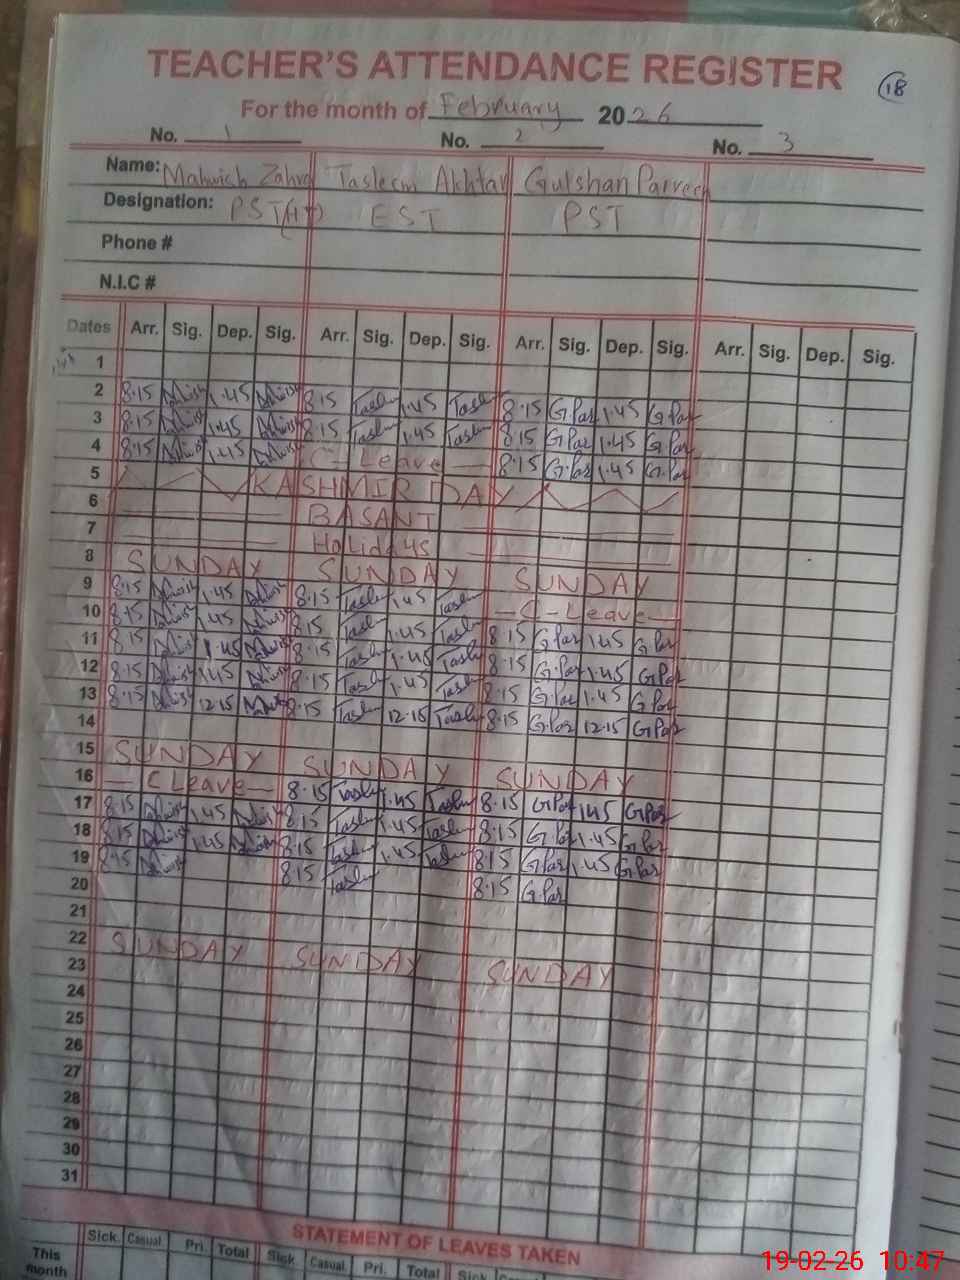 TEACHER'S ATTENDANCE REGISTER
18
For the month of February 2026
No. 1 No. 2 No. 3
Name: Mahwish Zahra Tasleem Akhtar Gulshan Parveen
Designation: PST(HT) EST PST
Phone #
N.I.C #
Dates Arr. Sig. Dep. Sig. Arr. Sig. Dep. Sig. Arr. Sig. Dep. Sig. Arr. Sig. Dep. Sig.
1
2 8.15 1.45 8.15 Taslm 1.45 Taslm 8.15 G.Par 1.45 G.Par
3 8.15 1.45 8.15 Taslm 1.45 Taslm 8.15 G.Par 1.45 G.Par
4 8.15 1.45 C-Leave 8.15 G.Par 1.45 G.Par
5 KASHMIR DAY
6 BASANT
7 Holidays
8 SUNDAY SUNDAY SUNDAY
9 8.15 1.45 8.15 Taslm 1.45 Taslm - C-Leave -
10 8.15 1.45 8.15 Taslm 1.45 Taslm 8.15 G.Par 1.45 G.Par
11 8.15 1.45 8.15 Taslm 1.45 Taslm 8.15 G.Par 1.45 G.Par
12 8.15 1.45 8.15 Taslm 1.45 Taslm 8.15 G.Par 1.45 G.Par
13 8.15 12.15 8.15 Taslm 12.15 Taslm 8.15 G.Par 12.15 G.Par
14
15 SUNDAY SUNDAY SUNDAY
16 - C Leave - 8.15 Taslm 1.45 Taslm 8.15 G.Par 1.45 G.Par
17 8.15 1.45 8.15 Taslm 1.45 Taslm 8.15 G.Par 1.45 G.Par
18 8.15 1.45 8.15 Taslm 1.45 Taslm 8.15 G.Par 1.45 G.Par
19 8.15 8.15 Taslm 8.15 G.Par
20
21
22 SUNDAY SUNDAY SUNDAY
23
24
25
26
27
28
29
30
31
STATEMENT OF LEAVES TAKEN
Sick Casual Pri. Total Sick Casual Pri. Total Sick Casual
This month
19-02-26 10:47